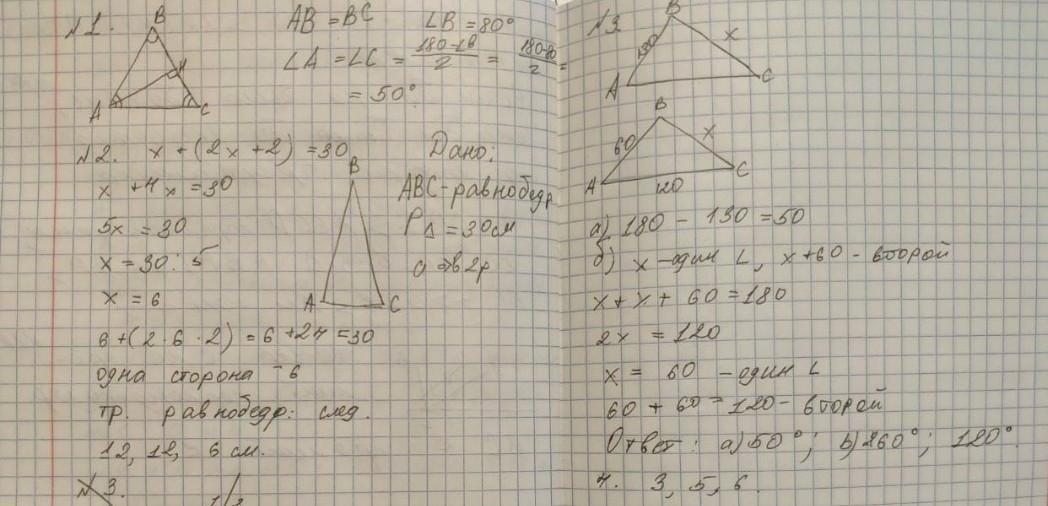 №1.
B
A
H
C
AB = BC  ∠B = 80°
∠A = ∠C = (180-∠B)/2 = (180-80)/2 =
= 50°
№2. x + (2x + 2) = 30
x + 4x = 30
5x = 30
x = 30 : 5
x = 6
B
A
C
Дано:
ABC - равнобедр
P∆ = 30см
6 + (2 · 6 · 2) = 6 + 24 = 30
одна сторона - 6
тр. равнобедр: след.
12, 12, 6 см.
№3.
№3.
B
x
A
C
B
60
x
A
C
120
а) 180 - 130 = 50
б) x - один ∠, x + 60 - второй
x + x + 60 = 180
2x = 120
x = 60 - один ∠
60 + 60 = 120 - второй
Ответ: а) 50°; 60°; 120°.
4. 3, 5, 6.